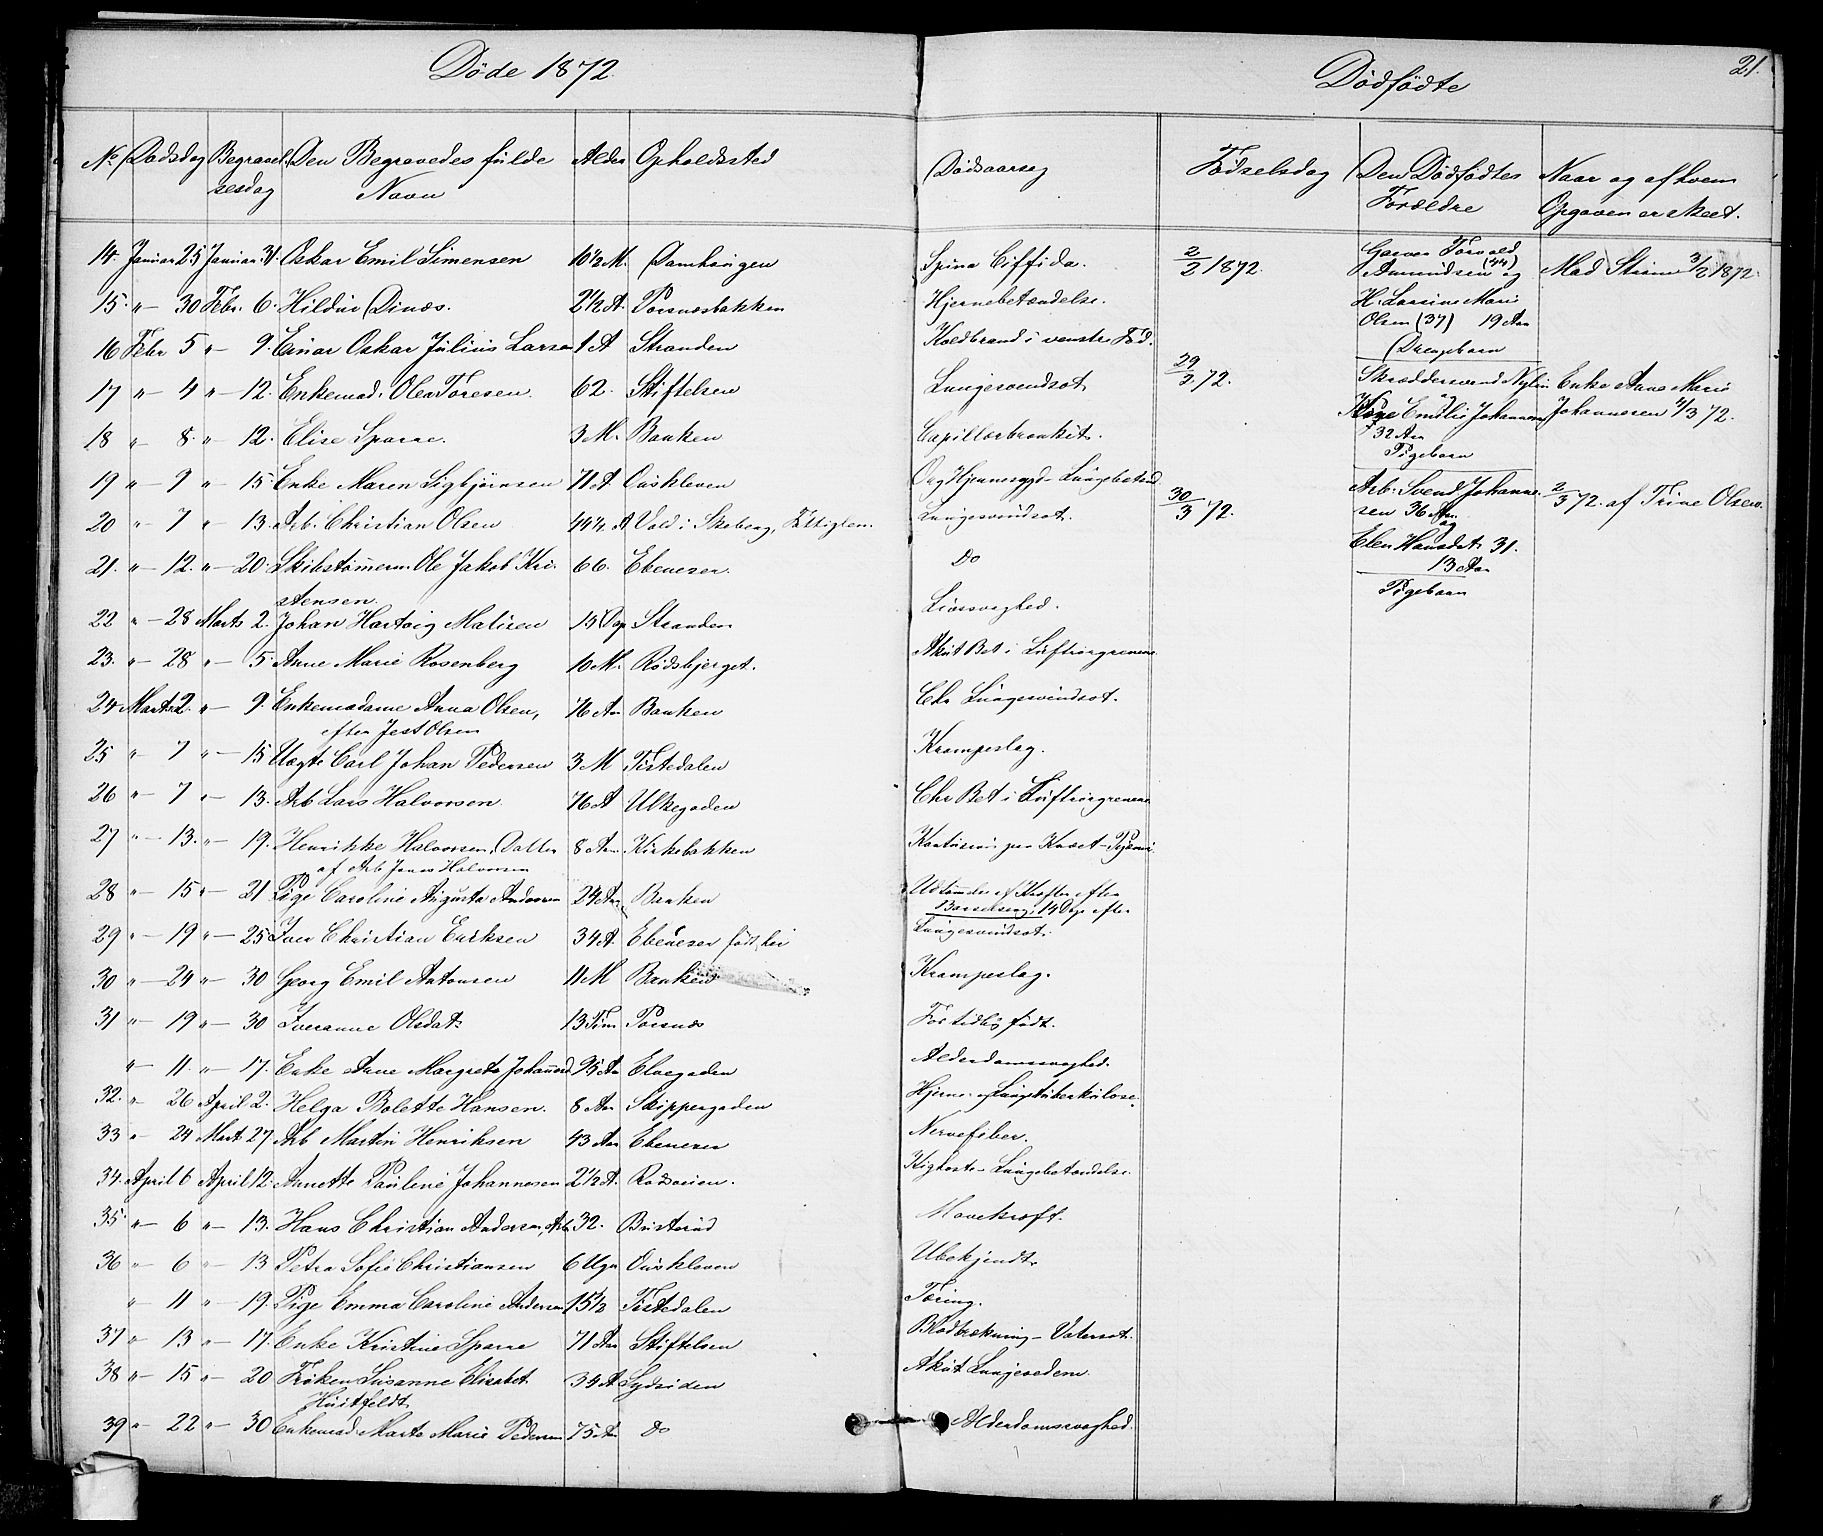 Døde 1872.
Dødfødte
21.
No Dødsdag Begravelsesdag Den Begravedes fulde Navn Alder Opholdssted Dødsaarsag Fødselsdag Den Dødfødtes Forældre Naar og af hvem Opgaven er skeet.
14. Januar 25 Januar 31. Oskar Emil Simensen 10½ M. Damhaugen Spina Biffida.
15. " 30 Febr. 6. Hildur Dinæs. 2½ A. Torsnæsbakken Hjernebetændelse.
16 Febr 5 " 9. Einar Oskar Julius Larsen 1 A Stranden Koldbrand i venstre Fod.
17 " 4 " 12. Enkemad. Olea Toresen 62. Stiftelsen Lungesvindsot
18 " 8. " 12. Elise Sparre. 3 M. Banken Capillærbronkit.
19 " 9 " 15. Enke Maren Sigbjørnsen 71 A Ouskleven
20 " 7 " 13. Arb. Christian Olsen 49½ A Vold i Skeberg, Lungesvindsot.
21. " 12. " 20. Skibstømerm. Ole Jakob Kri-
stensen. 66. Ebeneser. Do
22 " 28 Marts 2. Johan Hartvig Matisen 15 Dage Stranden Livssvaghed.
23. " 28 " 5. Anne Marie Rosenberg 10 M. Rødsbjerget. Akut Bet i Luftrørgrenene
24 Marts 2. " 9. Enkemadame Anna Olsen,
efter Jest Olsen 76 Aar Banken Chr Lungesvindsot.
25 " 7 " 15 Uægte Carl Johan Pedersen 3 M Tistedalen Krampeslag.
26 " 7 " 13. Arb Lars Halvorsen. 76 A Ulkegaden Chr Bet i Luftrørgrenene
27 " 13. " 19. Henrikke Halvorsen, Datter
af Arb Jens Halvorsen 8 Aar Kirkebakken
28 " 15 " 21 Pige Caroline Augusta Andersen 24 Aar Banken Udtømdes af Kræfter efter
Barselseng, 14 Dage efter
29 " 19 " 25 Iver Christian Eriksen 34 A. Ebeneser født her Lungesvindsot.
30 " 24 " 30 Georg Emil Antonsen 11 M Banken Krampeslag.
31 " 19 " 30 Iveranne Olsdat. 13 Tim Torsnæs For tidlig født.
" 11. " 17. Enke Anne Margrete Johannesd 95 Aar Elvegaden Alderdomssvaghed.
32. " 26 April 2. Helga Bolette Hansen. 8 Aar Skippergaden Hjerne- og Lungetuberkulose.
33 " 24 Mart. 27 Arb Martin Henriksen 43 Aar Ebeneser Nervefeber.
34. April 6 April 12. Annette Pauline Johannesen 2½ A. Rødsveien. Kighoste - Lungebetændelse.
35. " 6 " 13. Hans Christian Andersen, Arb 32. Bristerud Mavekræft.
36 " 6 " 13 Petra Sofie Christiansen 6 Uger Ouskleven Ubekjendt.
" 11 " 19. Pige Emma Caroline Andersen 15½ Tistedalen Tæring.
37 " 13 " 17. Enke Kristine Sparre 71 Aar Stiftelsen Blodbrækning - Vatersot.
38 " 15 " 20 Frøken Susanne Elisabet
Huitfeldt 34 A Sydsiden Akut Lungeødem.
39 " 22 " 30 Enkemad. Marte Marie Pedersen 75 Aar Do Alderdomssvaghed.
2/3 1872. Garver Torvald
Amundsen (44) og
H. Larsine Marie
Olsen (37) 19 Aar
Drengebarn
Mad Strøm 3/3 1872.
29/3 72. Skræddersvend Nylin
og
Kone Emilie Johannesen
32 Aar
Pigebarn
Enke Anne Marie
Johannesen 4/3 72.
30/3 72. Arb. Svend Johanne-
sen 36 Aar.
og
Elen Hansdat. 31.
13 Aar
Pigebarn
2/3 72. af Trine Olsen.